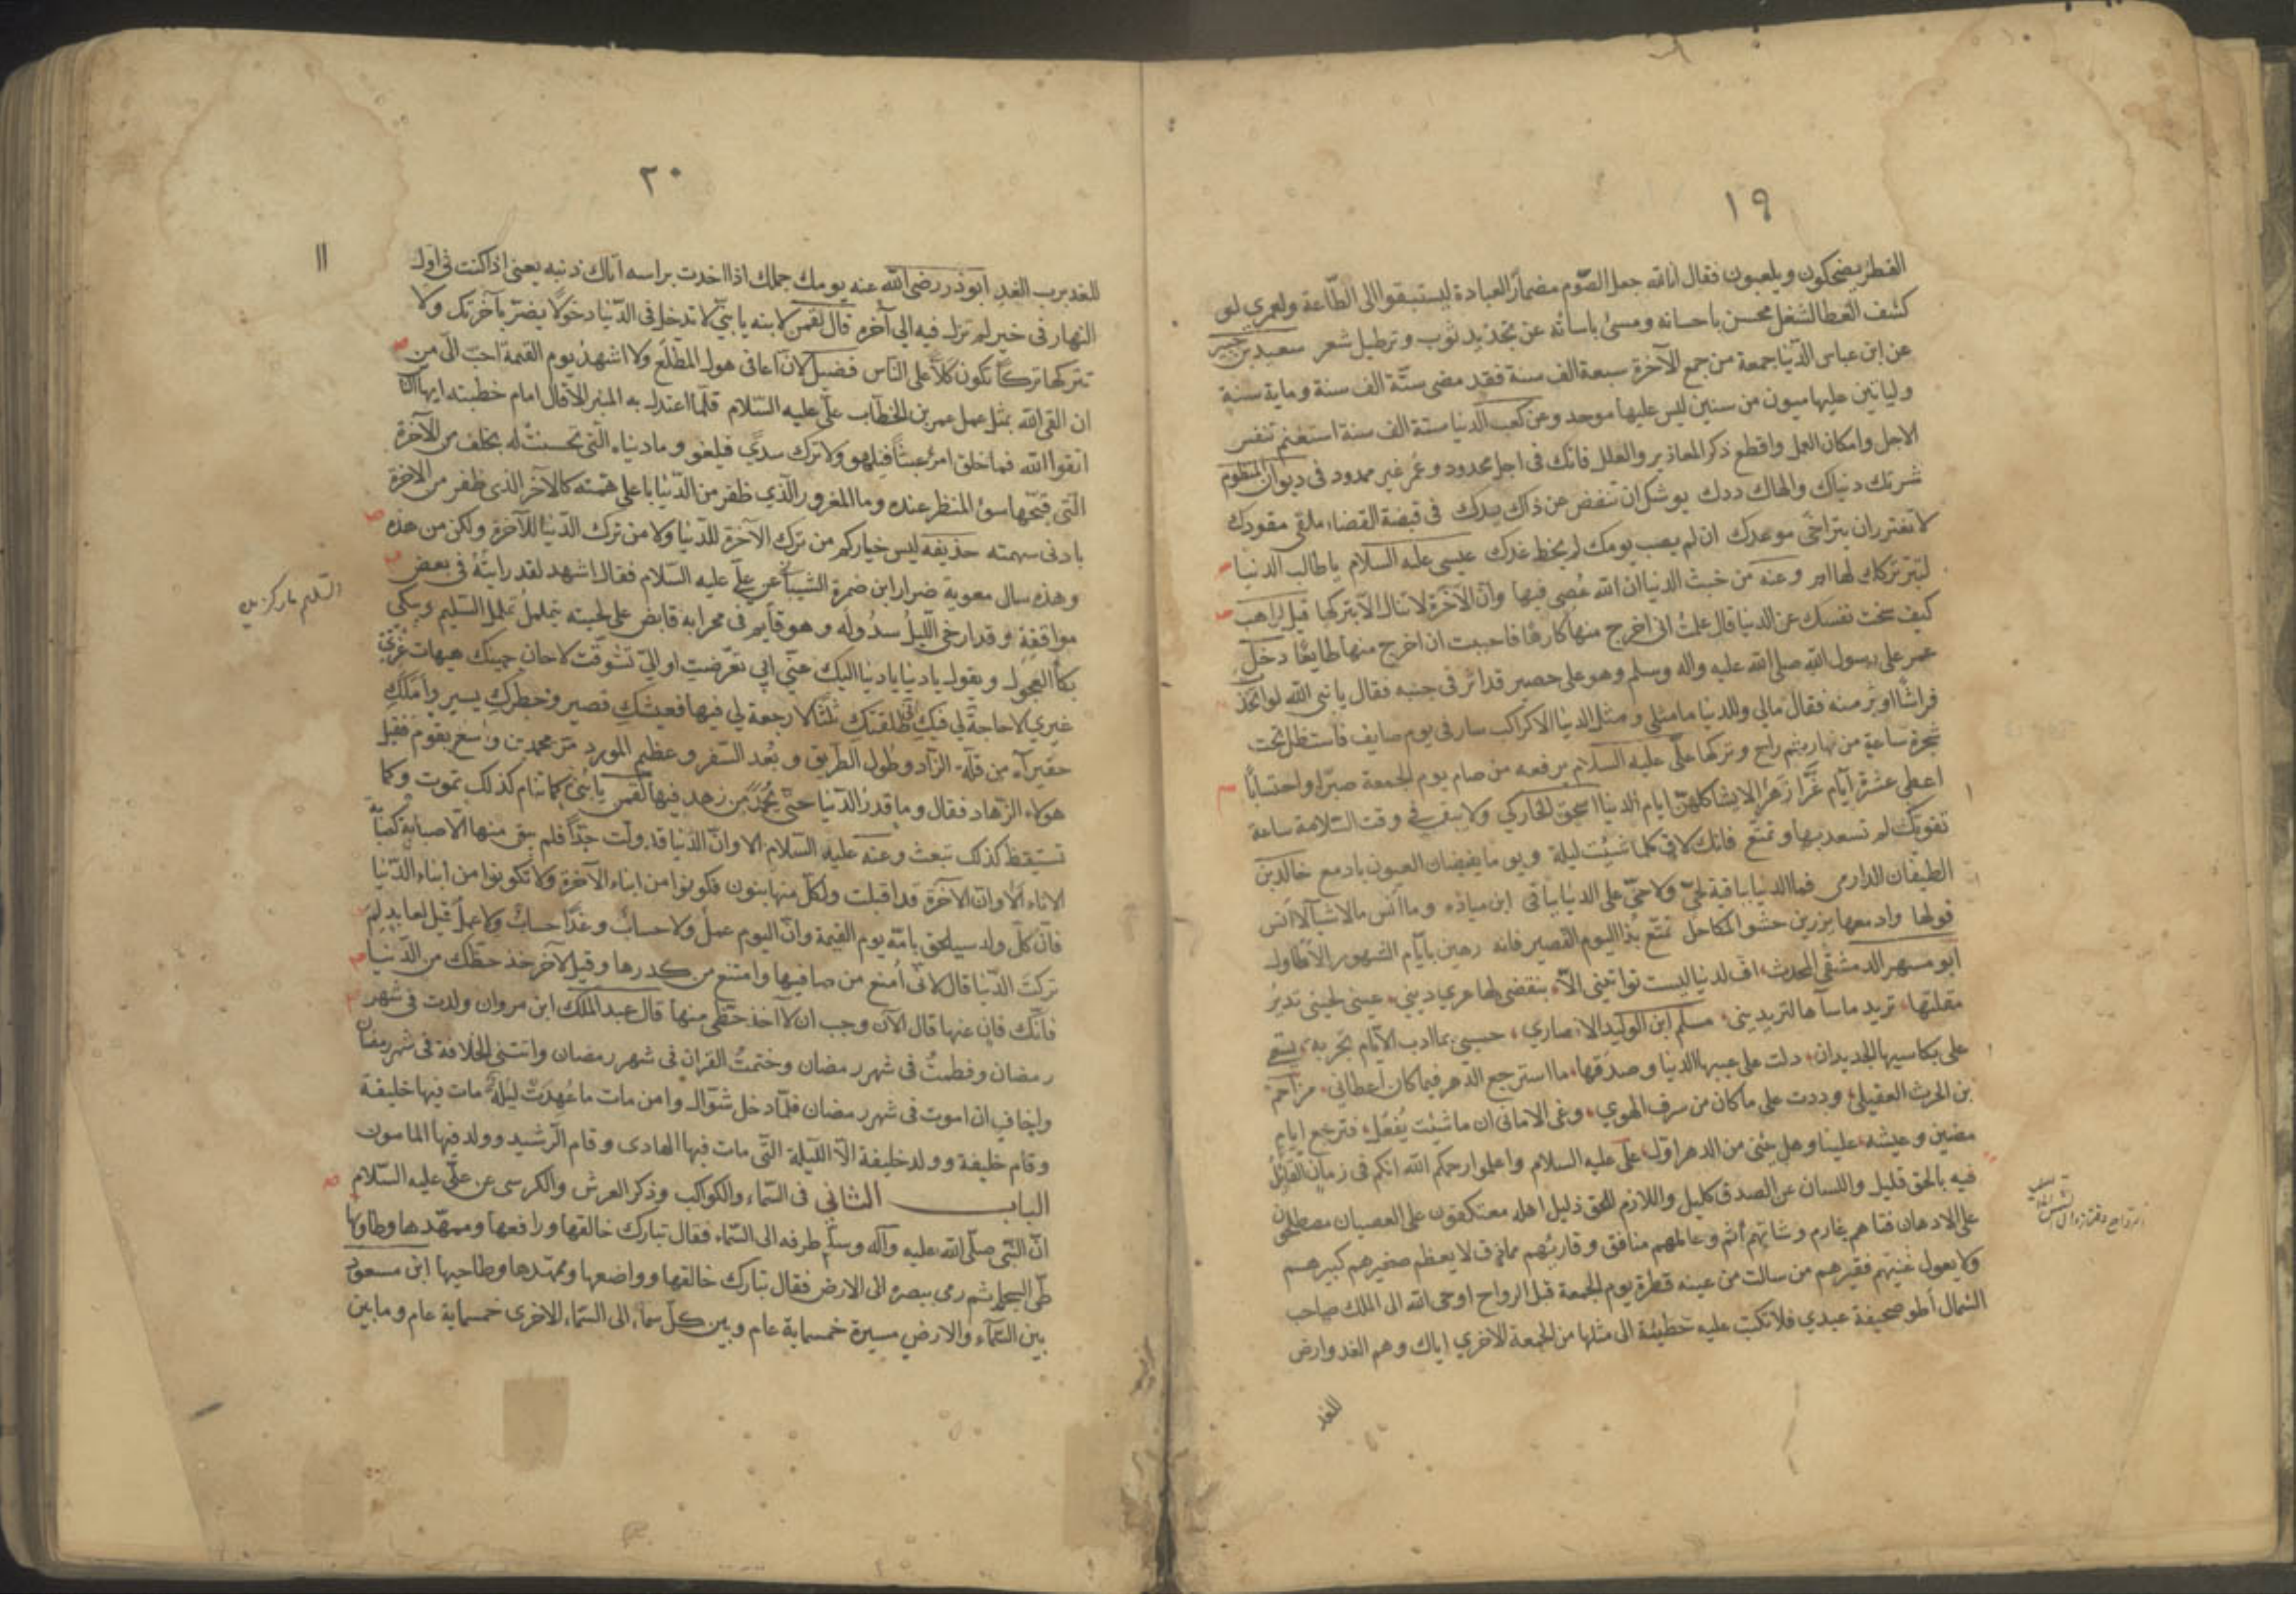 ١٩
الفطر يضحكون ويلعبون فقال ان الله جعل الصوم مضمار العبادة ليستبقوا الى الطاعة ولعمري لو
كشف الغطا لشغل محسن باحسانه ومسئ باساته عن تجديد ثوب وترطيل شعر سعيد بن جبير
عن ابن عباس الدنيا جمعة من جمع الآخرة سبعة الف سنة فقد مضى ستة الف سنة وماية سنة
وليأتين عليها ميون من سنين ليس عليها موحد وعن كعب الدنيا ستة الف سنة استغنم تنفس
الاجل وامكان العمل واقطع ذكر المعاذير والعلل فانك في اجل محدود وعمر غير ممدود في ديوان المنظوم
شرتك دنياك والهاك ددك يوشك ان تنفض عن ذاك يدك في قبضة القضاء ملقى مقودك
لا تغترر ان يتراخى موعدك ان لم يصب يومك لم يخط غدك عيسى عليه السلام يا طالب الدنيا
لتبر تركك لها ابر وعنه من خبث الدنيا ان الله عصى فيها وان الآخرة لا تنال الا بتركها قيل لراهب
كيف سخت نفسك عن الدنيا قال علمت اني اخرج منها كارها فاحببت ان اخرج منها طايعا دخل
عمر على رسول الله صلى الله عليه واله وسلم وهو على حصير قد اثر في جنبه فقال يا نبي الله لو اتخذت
فراشا اوثر منه فقال مالي وللدنيا ما مثلي ومثل الدنيا الا كراكب سار في يوم صايف فاستظل تحت
شجرة ساعة من نهار ثم راح وتركها علي عليه السلام يرفعه من صام يوم الجمعة صبرا واحتسابا
اعطى عشرة ايام غر ازهر لا يشاكلهن ايام الدنيا اسحق الخاركي ولا يبقى في وقت السلامة ساعة
تفوتك لم تسعد بها وتمتع فانك لاق كلما شئت ليلة ويوما يفيضان العيون بادمع خالد بن
الطيفان الدارمى فما الدنيا بباقية لحي ولا حي على الدنيا بباقى ابن ميادة وما انس مالاشيا لا انس
قولها وادمعها يزرين حشو المكاحل تمتع بذا اليوم القصير فانه رهين بايام الشهور الاطاول
ابو مسهر الدمشقي المحدث اف لدنيا ليست تواتيني الا بنقضى لها عرى ديني عيني لحيني تدير
مقلتها تريد ما ساءها لترديني مسلم ابن الوليد الانصاري حسبي بما ادت الايام تجربة يسعى
علي بكاسيها الجديدان دلت على عيبها الدنيا وصدقها ما استرجع الدهر فيما كان اعطاني مزاحم
بن الحرث العقيلي وددت على ما كان من سرف الهوى وغي الاماني ان ما شئت يفعل فترجع ايام
مضين وعيشه علينا وهل يثنى من الدهر اول علي عليه السلام واعلموا رحمكم الله انكم في زمان القائل
فيه بالحق قليل واللسان عن الصدق كليل واللازم للحق ذليل اهله معتكفون على العصيان مصطلحون
على الادهان فتاهم غارم وشايبهم اثم وعالمهم منافق وقاريهم مماذق لا يعظم صغيرهم كبيرهم
ولا يعول غنيهم فقيرهم من سالت من عينه قطرة يوم الجمعة قبل الرواح اوحى الله الى الملك صاحب
الشمال اطو صحيفة عبدي فلا تكتب عليه خطيئة الى مثلها من الجمعة الاخري اياك وهم الغد وارض
للغد
٢٠
للغد برب الغد ابوذر رضي الله عنه يومك جملك اذا اخدت براسه اتاك ذنبه يعني اذا كنت في اول
النهار في خير لم تزل فيه الى آخره قال لقمن لابنه يا بني لا تدخل في الدنيا دخولا يضر بآخرتك ولا
تتركها تركا تكون كلا على الناس فضيل لان اعافى هول المطلع ولا اشهد يوم القيمة احب الي من
ان القى الله بمثل عمل عمر بن الخطاب علي عليه السلام قلما اعتدل به المنبر الا قال امام خطبته ايها الناس
اتقوا الله فما خلق امرؤ عبثا فيلهو ولا ترك سدي فيلغو وما دنياه التي تحسنت له بخلف من الآخرة
التي قبحها سوء المنظر عنده وما المغرور الذي ظفر من الدنيا باعلى همته كالآخر الذي ظفر من الاخرة
بادنى سهمته حذيفه ليس خياركم من ترك الآخرة للدنيا ولا من ترك الدنيا للآخرة ولكن من هذه
وهذه سال معوية ضرار ابن ضمرة الشيباني عن علي عليه السلام فقال اشهد لقد رايته في بعض
مواقفه وقد ارخى الليل سدوله وهو قايم في محرابه قابض على لحيته يتململ تململ السليم ويبكي
بكاء العجول ويقول يا دنيا يا دنيا اليك عني ابي تعرضت او الي تشوقت لا حان حينك هيهات غري
غيري لا حاجة لي فيك قد طلقتك ثلثا لا رجعة لي فيها فعيشك قصير وخطرك يسير واملك
حقير آه من قلة الزاد وطول الطريق وبعد السفر وعظيم المورد مر محمد بن واسع بقوم فقيل
هولاء الزهاد فقال وما قدر الدنيا حتى يحمد من زهد فيها لقمن يا بني كما تنام كذلك تموت وكما
تستيقظ كذلك تبعث وعنه عليه السلام الا وان الدنيا قد ولت حذا فلم يبق منها الا صبابة كصبابة
الاناء الا وان الآخرة قد اقبلت ولكل منها بنون فكونوا من ابناء الآخرة ولا تكونوا من ابناء الدنيا
فان كل ولد سيلحق بامه يوم القيمة وان اليوم عمل ولا حساب وغدا حساب ولا عمل قيل لعابد لم
تركت الدنيا قال لاني امنع من صافيها وامتنع من كدرها وقيل لآخر خذ حظك من الدنيا
فانك فان عنها قال الآن وجب ان لا آخذ حظي منها قال عبد الملك ابن مروان ولدت في شهر
رمضان وفطمت في شهر رمضان وختمت القران في شهر رمضان واتتني الخلافة في شهر رمضان
واخاف ان اموت في شهر رمضان فلما دخل شوال وامن مات ما عهدت ليلة مات فيها خليفة
وقام خليفة وولد خليفة الا الليلة التي مات فيها الهادى وقام الرشيد وولد فيها المامون
الباب الثاني في السماء والكواكب وذكر العرش والكرسى عن علي عليه السلام
ان النبي صلى الله عليه وآله وسلم طرفه الى السماء فقال تبارك خالقها ورافعها وممهدها وطاويها
طي السجل ثم رمى ببصره الى الارض فقال تبارك خالقها وواضعها وممهدها وطاحيها ابن مسعود
بين السماء والارض مسيرة خمسماية عام وبين كل سماء الى السماء الاخرى خمسماية عام وما بين